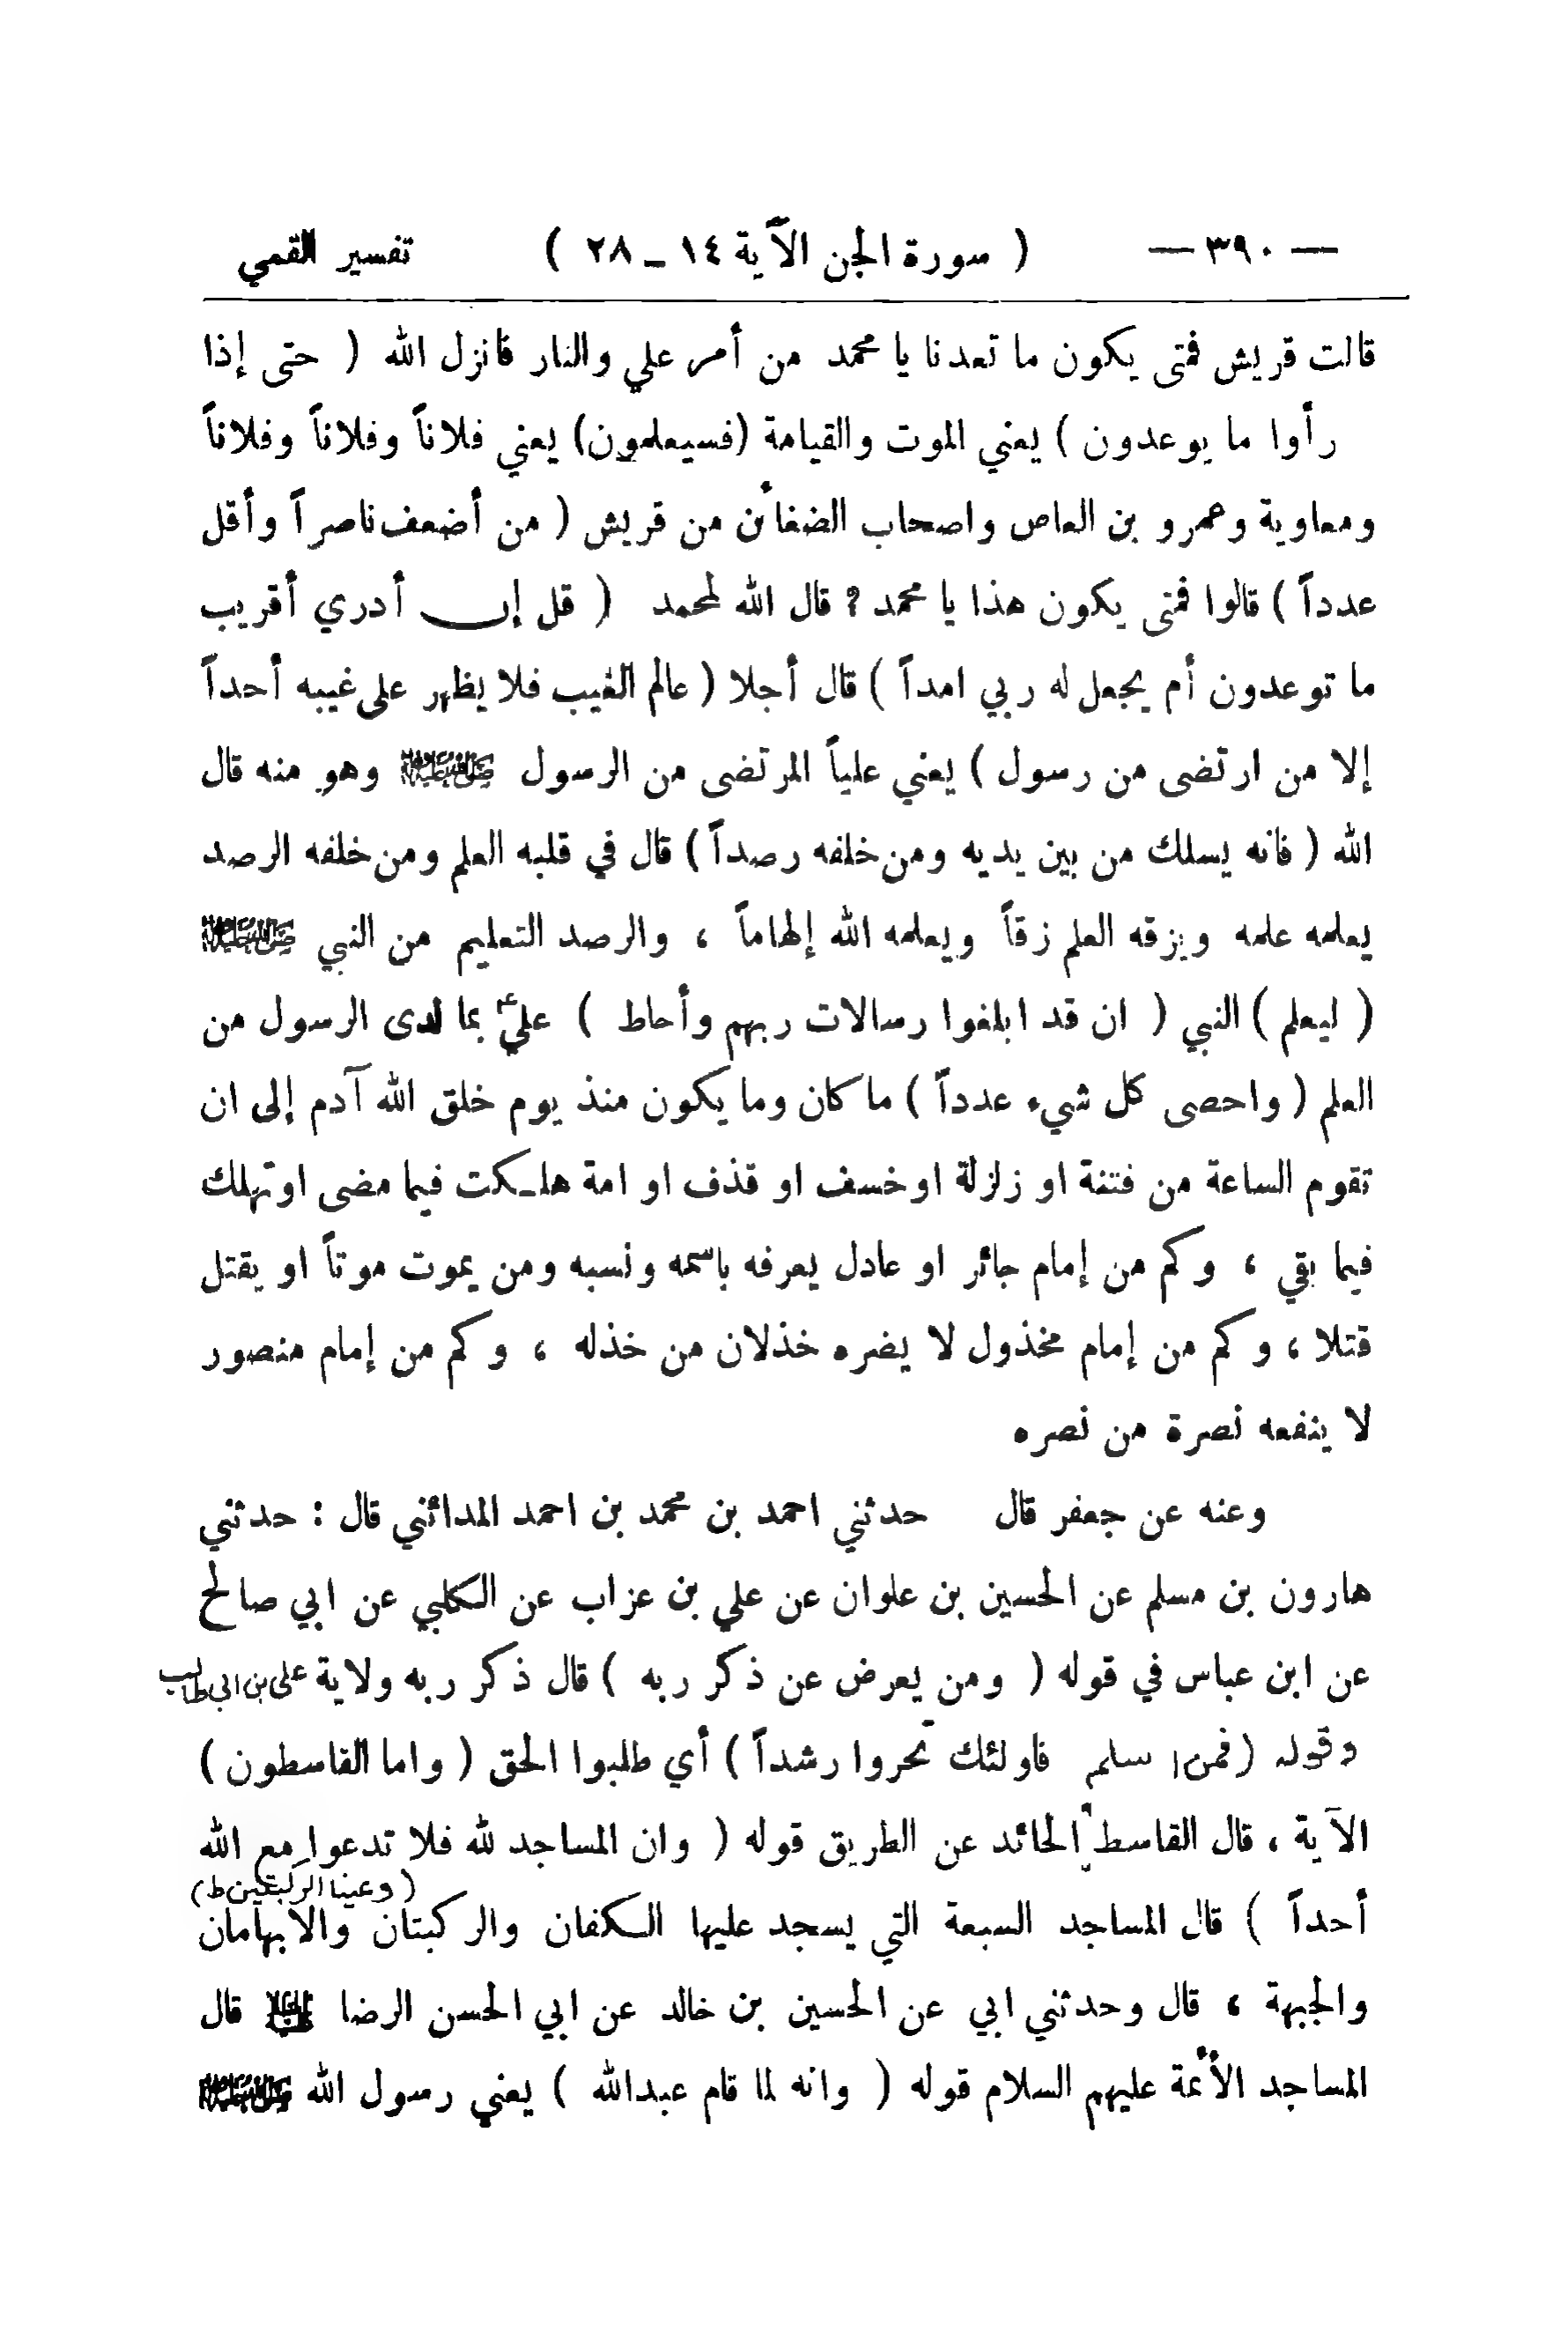 — ٣٩٠ — ( سورة الجن الآية ١٤ – ٢٨ ) تفسير القمي
قالت قريش فمتى يكون ما تعدنا يا محمد من أمر علي والنار فانزل الله ( حتى إذا
رأوا ما يوعدون ) يعني الموت والقيامة (فسيعلمون) يعني فلاناً وفلاناً وفلاناً
ومعاوية وعمرو بن العاص واصحاب الضغائن من قريش ( من أضعف ناصراً وأقل
عدداً ) قالوا فمتى يكون هذا يا محمد ? قال الله لمحمد ( قل إن أدري أقريب
ما توعدون أم يجعل له ربي امداً ) قال أجلا ( عالم الغيب فلا يظهر على غيبه أحداً
إلا من ارتضى من رسول ) يعني علياً المرتضى من الرسول ﷺ وهو منه قال
الله ( فانه يسلك من بين يديه ومن خلفه رصداً ) قال في قلبه العلم ومن خلفه الرصد
يعلمه علمه ويزقه العلم زقاً ويعلمه الله إلهاماً ، والرصد التعليم من النبي ﷺ
( ليعلم ) النبي ( ان قد ابلغوا رسالات ربهم وأحاط ) عليؑ بما لدى الرسول من
العلم ( واحصى كل شيء عدداً ) ما كان وما يكون منذ يوم خلق الله آدم إلى ان
تقوم الساعة من فتنة او زلزلة او خسف او قذف او امة هلـكت فيما مضى او تهلك
فيما بقي ، وكم من إمام جائر او عادل يعرفه باسمه ونسبه ومن يموت موتاً او يقتل
قتلا ، وكم من إمام مخذول لا يضره خذلان من خذله ، وكم من إمام منصور
لا ينفعه نصرة من نصره
وعنه عن جعفر قال حدثني احمد بن محمد بن احمد المدائني قال : حدثني
هارون بن مسلم عن الحسين بن علوان عن علي بن عزاب عن الكلبي عن ابي صالح
عن ابن عباس في قوله ( ومن يعرض عن ذكر ربه ) قال ذكر ربه ولاية علي بن ابي طالب
وقوله (فمن اسلم فاولئك تحروا رشداً ) أي طلبوا الحق ( واما القاسطون )
الآية ، قال القاسط الحائد عن الطريق قوله ( وان المساجد لله فلا تدعوا مع الله
(وعينا الركبتين ط)
أحداً ) قال المساجد السبعة التي يسجد عليها الـكفان والركبتان والابهامان
والجبهة ، قال وحدثني ابي عن الحسين بن خالد عن ابي الحسن الرضا عليه السلام قال
المساجد الأئمة عليهم السلام قوله ( وانه لما قام عبدالله ) يعني رسول الله ﷺ